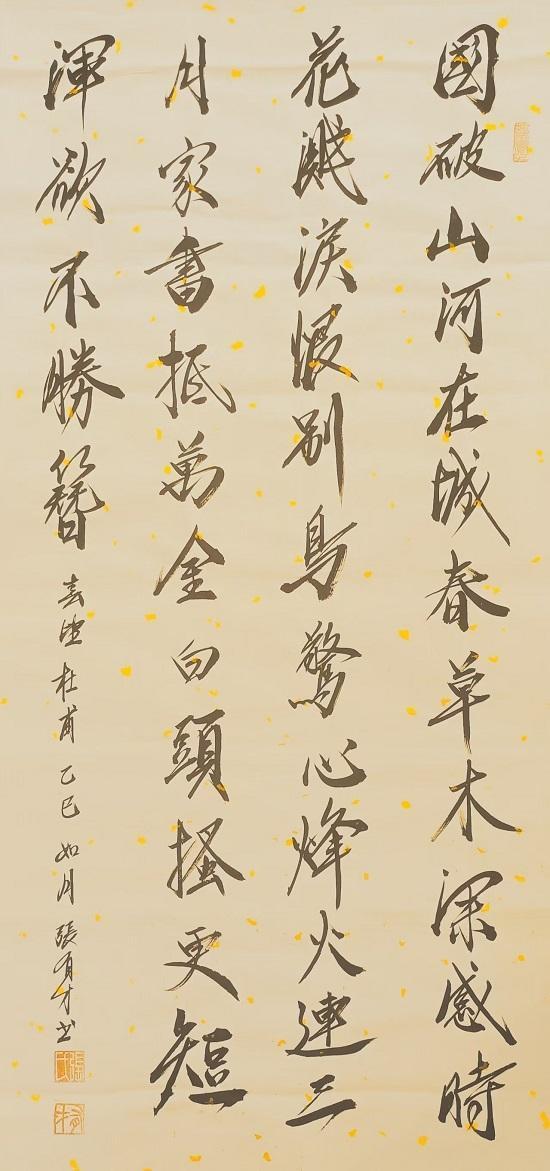 國破山河在城春草木深感時
花濺淚恨別鳥驚心烽火連三
月家書抵萬金白頭搔更短
渾欲不勝簪 春望 杜甫 乙巳 如月 張有才书